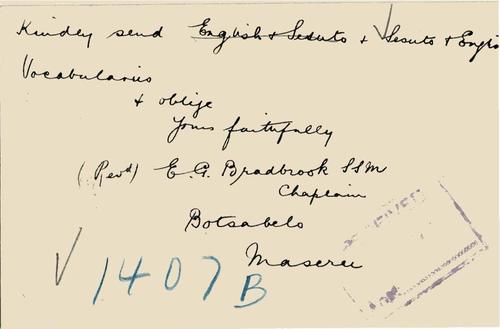 Kindly send English & Sesuto & Sesuto &
Vocabularies
& oblige
Yours faithfully
(Revd) E. G. Bradbrook SSM
Chaplain
Botsabelo
Maseru
1407B